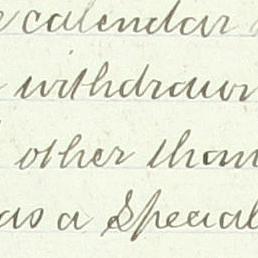 calendar
withdrawn
other than
as a Special